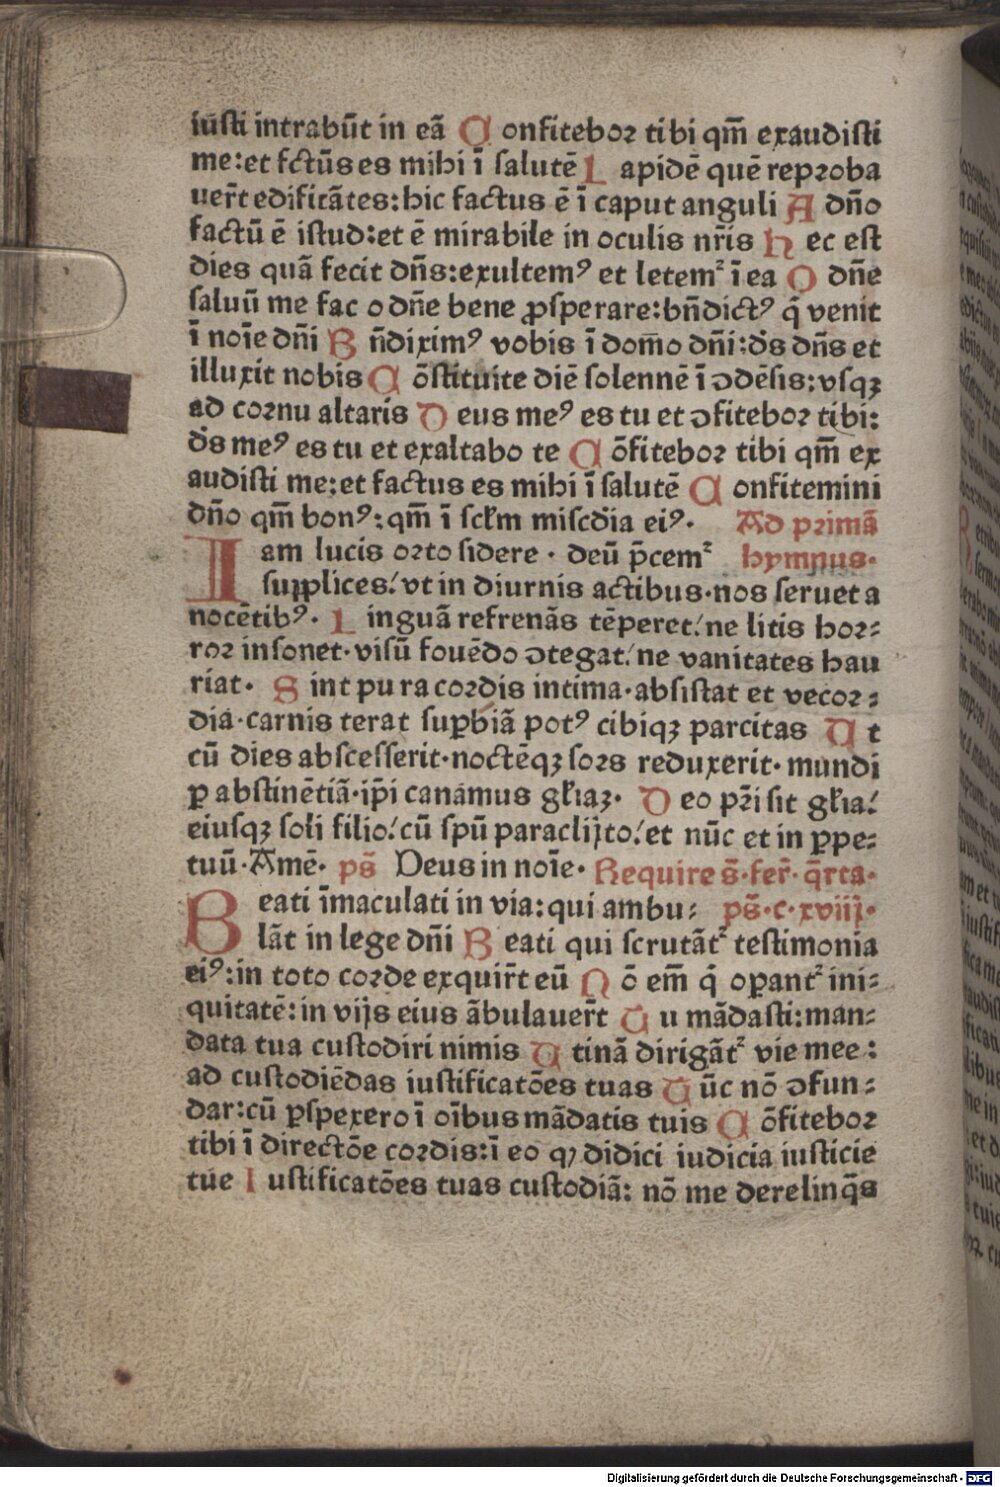 iusti intrabūt in eā Confitebor tibi qm̄ exaudisti
me:et fctūs es mihi ī salutē Lapidē quē reproba
uer̄t edificātes:hic factus ē ī caput anguli A dn̄o
factū ē istud:et ē mirabile in oculis nr̄is Hec est
dies quā fecit dn̄s:exultemꝰ et letem² ī ea O dn̄e
saluū me fac o dn̄e bene ꝓsperare:bn̄dictꝰ q̄ venit
ī noīe dn̄i Bn̄diximꝰ vobis ī dom̄o dn̄i:ds̄ dn̄s et
illuxit nobis Cōstituite diē solennē ī ↄdēsis:vsqꝫ
ad cornu altaris Deus meꝰ es tu et ↄfitebor tibi:
ds̄ meꝰ es tu et exaltabo te Cōfitebor tibi qm̄ ex
audisti me:et factus es mihi ī salutē Confitemini
dn̄o qm̄ bonꝰ:qm̄ ī scł̄m miscd̄ia eiꝰ. Ad primā
Iam lucis orto sidere · deū p̄cem² hympnus·
supplices!vt in diurnis actibus·nos seruet a
nocētibꝰ· Linguā refrenās tēperet!ne litis hor⸗
ror insonet·visū fouēdo ↄtegat!ne vanitates hau
riat· Sint pura cordis intima·absistat et vecor⸗
dia·carnis terat suꝑbiā potꝰ cibiqꝫ parcitas Ut
cū dies abscesserit·noctēqꝫ sors reduxerit·mundi
ꝑ abstinētiā·ip̄i canamus gł̄iaꝫ· Deo pr̄i sit gł̄ia!
eiusqꝫ soli filio!cū spū paraclijto!et nūc et in ꝑpe⸗
tuū·Amē· ps̄ Deus in noīe· Require s̄·fer̄·q̄rta·
Beati īmaculati in via:qui ambu⸗ ps̄·c·xviij·
lāt in lege dn̄i Beati qui scrutāt² testimonia
eiꝰ:in toto corde exquir̄t eū Nō em̄ q̄ oꝑant² ini⸗
quitatē:in vijs eius ābulauer̄t Tu mādasti:man⸗
data tua custodiri nimis Utinā dirigāt² vie mee:
ad custodiēdas iustificatōes tuas Tūc nō ↄfun⸗
dar:cū ꝑspexero ī oībus mādatis tuis Cōfitebor
tibi ī directōe cordis:ī eo ꝙ didici iudicia iusticie
tue Iustificatōes tuas custodiā: nō me derelinq̄s
Digitalisierung gefördert durch die Deutsche Forschungsgemeinschaft - DFG